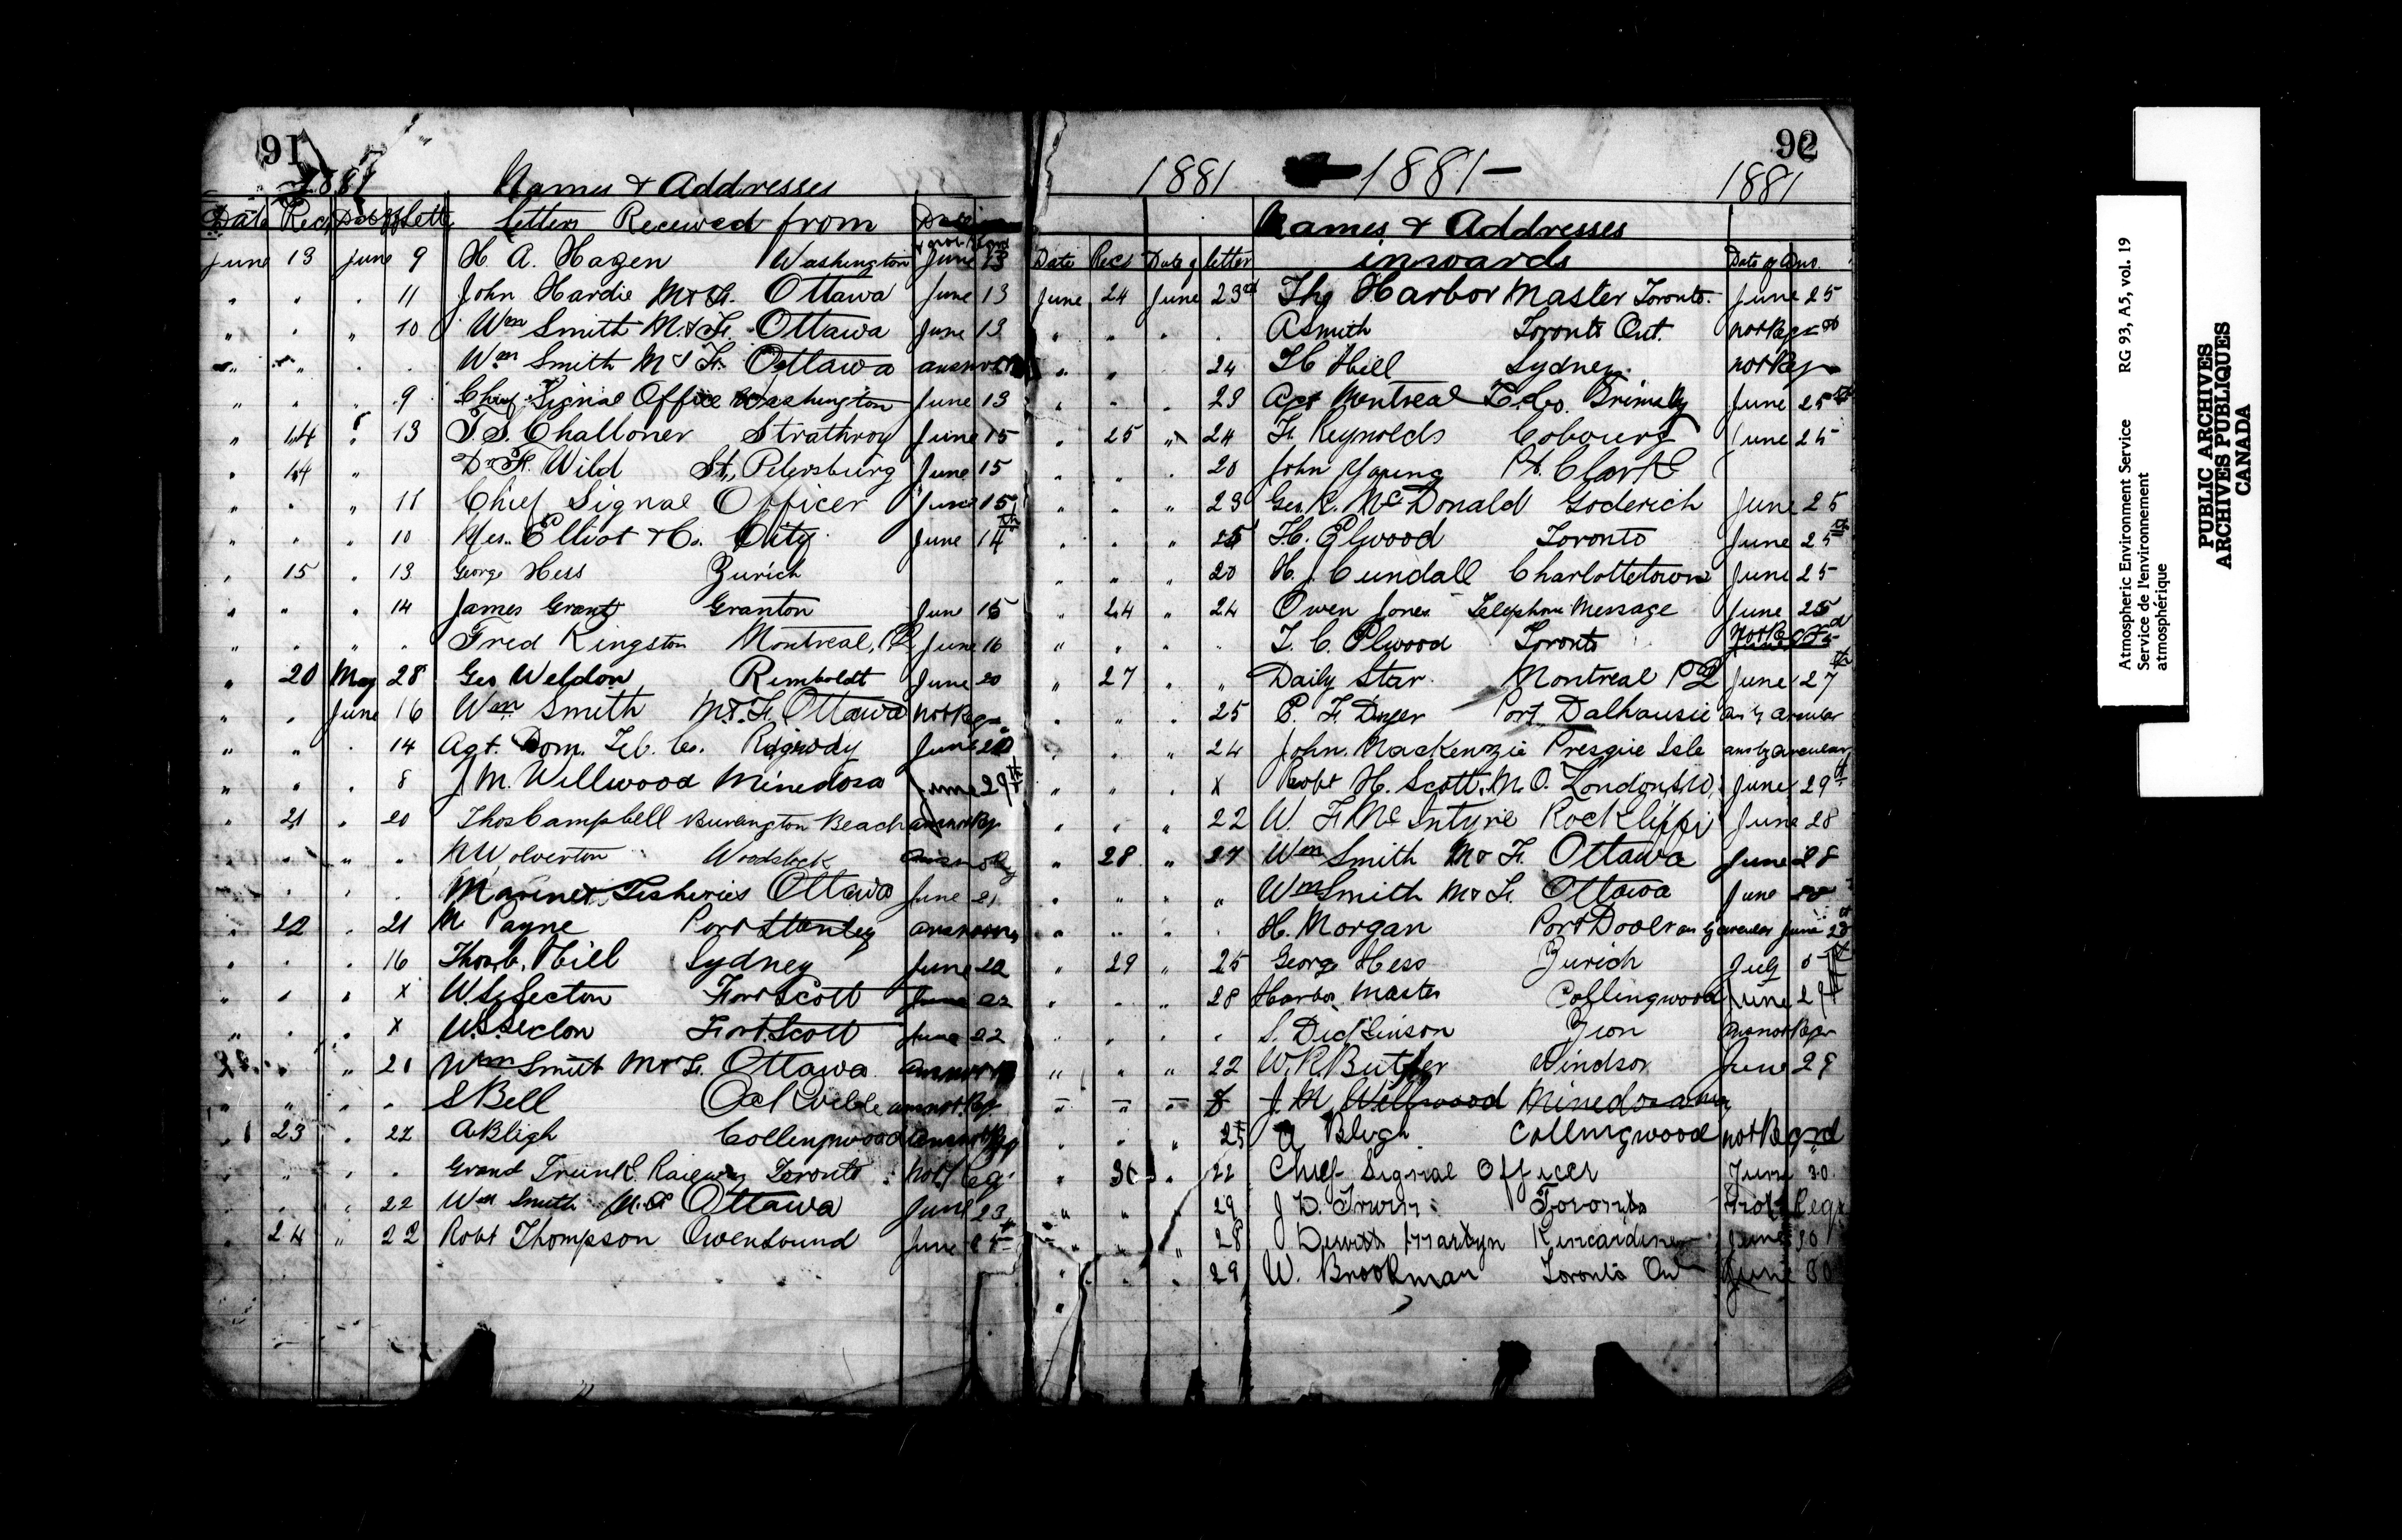 91
1881 Names & Addresses
Date Recd Date of Letter Letters Received from Date
June 13 June 9 H. A. Hazen Washington June 13
" " " 11 John Hardie M & F. Ottawa June 13
" " " 10 Wm Smith M. & F. Ottawa June 13
" " " " Wm Smith M & F. Ottawa
" " " 9 Chief Signal Office Washington June 13
" 14 " 13 J. S. Challoner Strathroy June 15
" 14 " Dr H. Wild St. Petersburg June 15
" " " 11 Chief Signal Officer June 15
" " " 10 Mes. Elliot & Co. City June 14th
" 15 " 13 George Hess Zurich
" " " 14 James Grant Granton June 15
" " " " Fred Kingston Montreal, PQ June 16
" 20 May 28 Geo Weldon Rimboldt June 20
" " June 16 Wm Smith M & F. Ottawa not Reg
" " " 14 Agt. Dom. Tel. Co. Ridgeway June 20
" " " 8 J. M. Wellwood Minedosa June 29th
" 21 " 20 Thos Campbell Burlington Beach ans not Rg
" " " " N Wolverton Woodstock
" " " " Marine & Fisheries Ottawa June 21
" 22 " 21 M Payne Port Stanley
" " " 16 Thos C. Hill Sydney June 22
" " " x W. S. Secton Fort Scott June 22
" " " x W. S. Secton Fort Scott June 22
" " 21 Wm Smith M & F. Ottawa
" " " " S Bell Oakville ans not Rg
" 23 " 22 A Bligh Collingwood
" " " " Grand Trunk Railway Toronto not Reg
" " " 22 Wm Smith M. & F Ottawa June 23
" 24 " 22 Robt Thompson Owen Sound June
92
1881 1881 - 1881
Names & Addresses
Date Recd Date of letter inwards Date of Ans.
June 24 June 23rd The Harbor Master Toronto. June 25
" " " " A Smith Toronto Ont. not Reqd
" " " 24 T C Hill Sydney not Reg
" " " 23 Agt Montreal T. Co. Grimsby June 25th
" 25 " 24 F. Reynolds Cobourg June 25
" " " 20 John Young Pt. Clark
" " " 23 Geo. R. McDonald Goderich June 25
" " " 25 H. Elwood Toronto June 25th
" " " 20 H. J. Cundall Charlottetown June 25
" 24 " 24 Owen Jones Telephone Message June 25
" " " " T. C. Elwood Toronto not Reqd
" 27 " " Daily Star Montreal PQ June 27th
" " " 25 P. F. Dwyer Port Dalhousie ans by circular
" " " 24 John Mackenzie Presque Isle ans by circular
" " " x Robt H. Scott. M. O. London, S.W. June 29th
" " " 22 W. F. McIntyre Rockliffe June 28
" 28 " 27 Wm Smith M & F. Ottawa June 28
" " " " Wm Smith M & F. Ottawa June 28
" " " " H. Morgan Port Dover ans by circular June 28
" 29 " 25 George Hess Zurich July 5th
" " " 28 Harbor Master Collingwood June 29
" " " " S. Dickinson Zion ans not Reqr
" " " 22 W. R. Butler Windsor June 29
" " " 8 J. M. Wellwood Minedosa
" " " 25 A Bligh Collingwood not Reqrd
" 30 " 22 Chief Signal Officer June 30
" " " 29 J D. Irwin Toronto not Reqr
" " " 28 Dewitt Martyn Kincardine June 30
" " " 29 W. Brookman Toronto On June 30
Atmospheric Environment Service RG 93, A5, vol. 19
Service de l'environnement
atmosphérique
PUBLIC ARCHIVES
ARCHIVES PUBLIQUES
CANADA